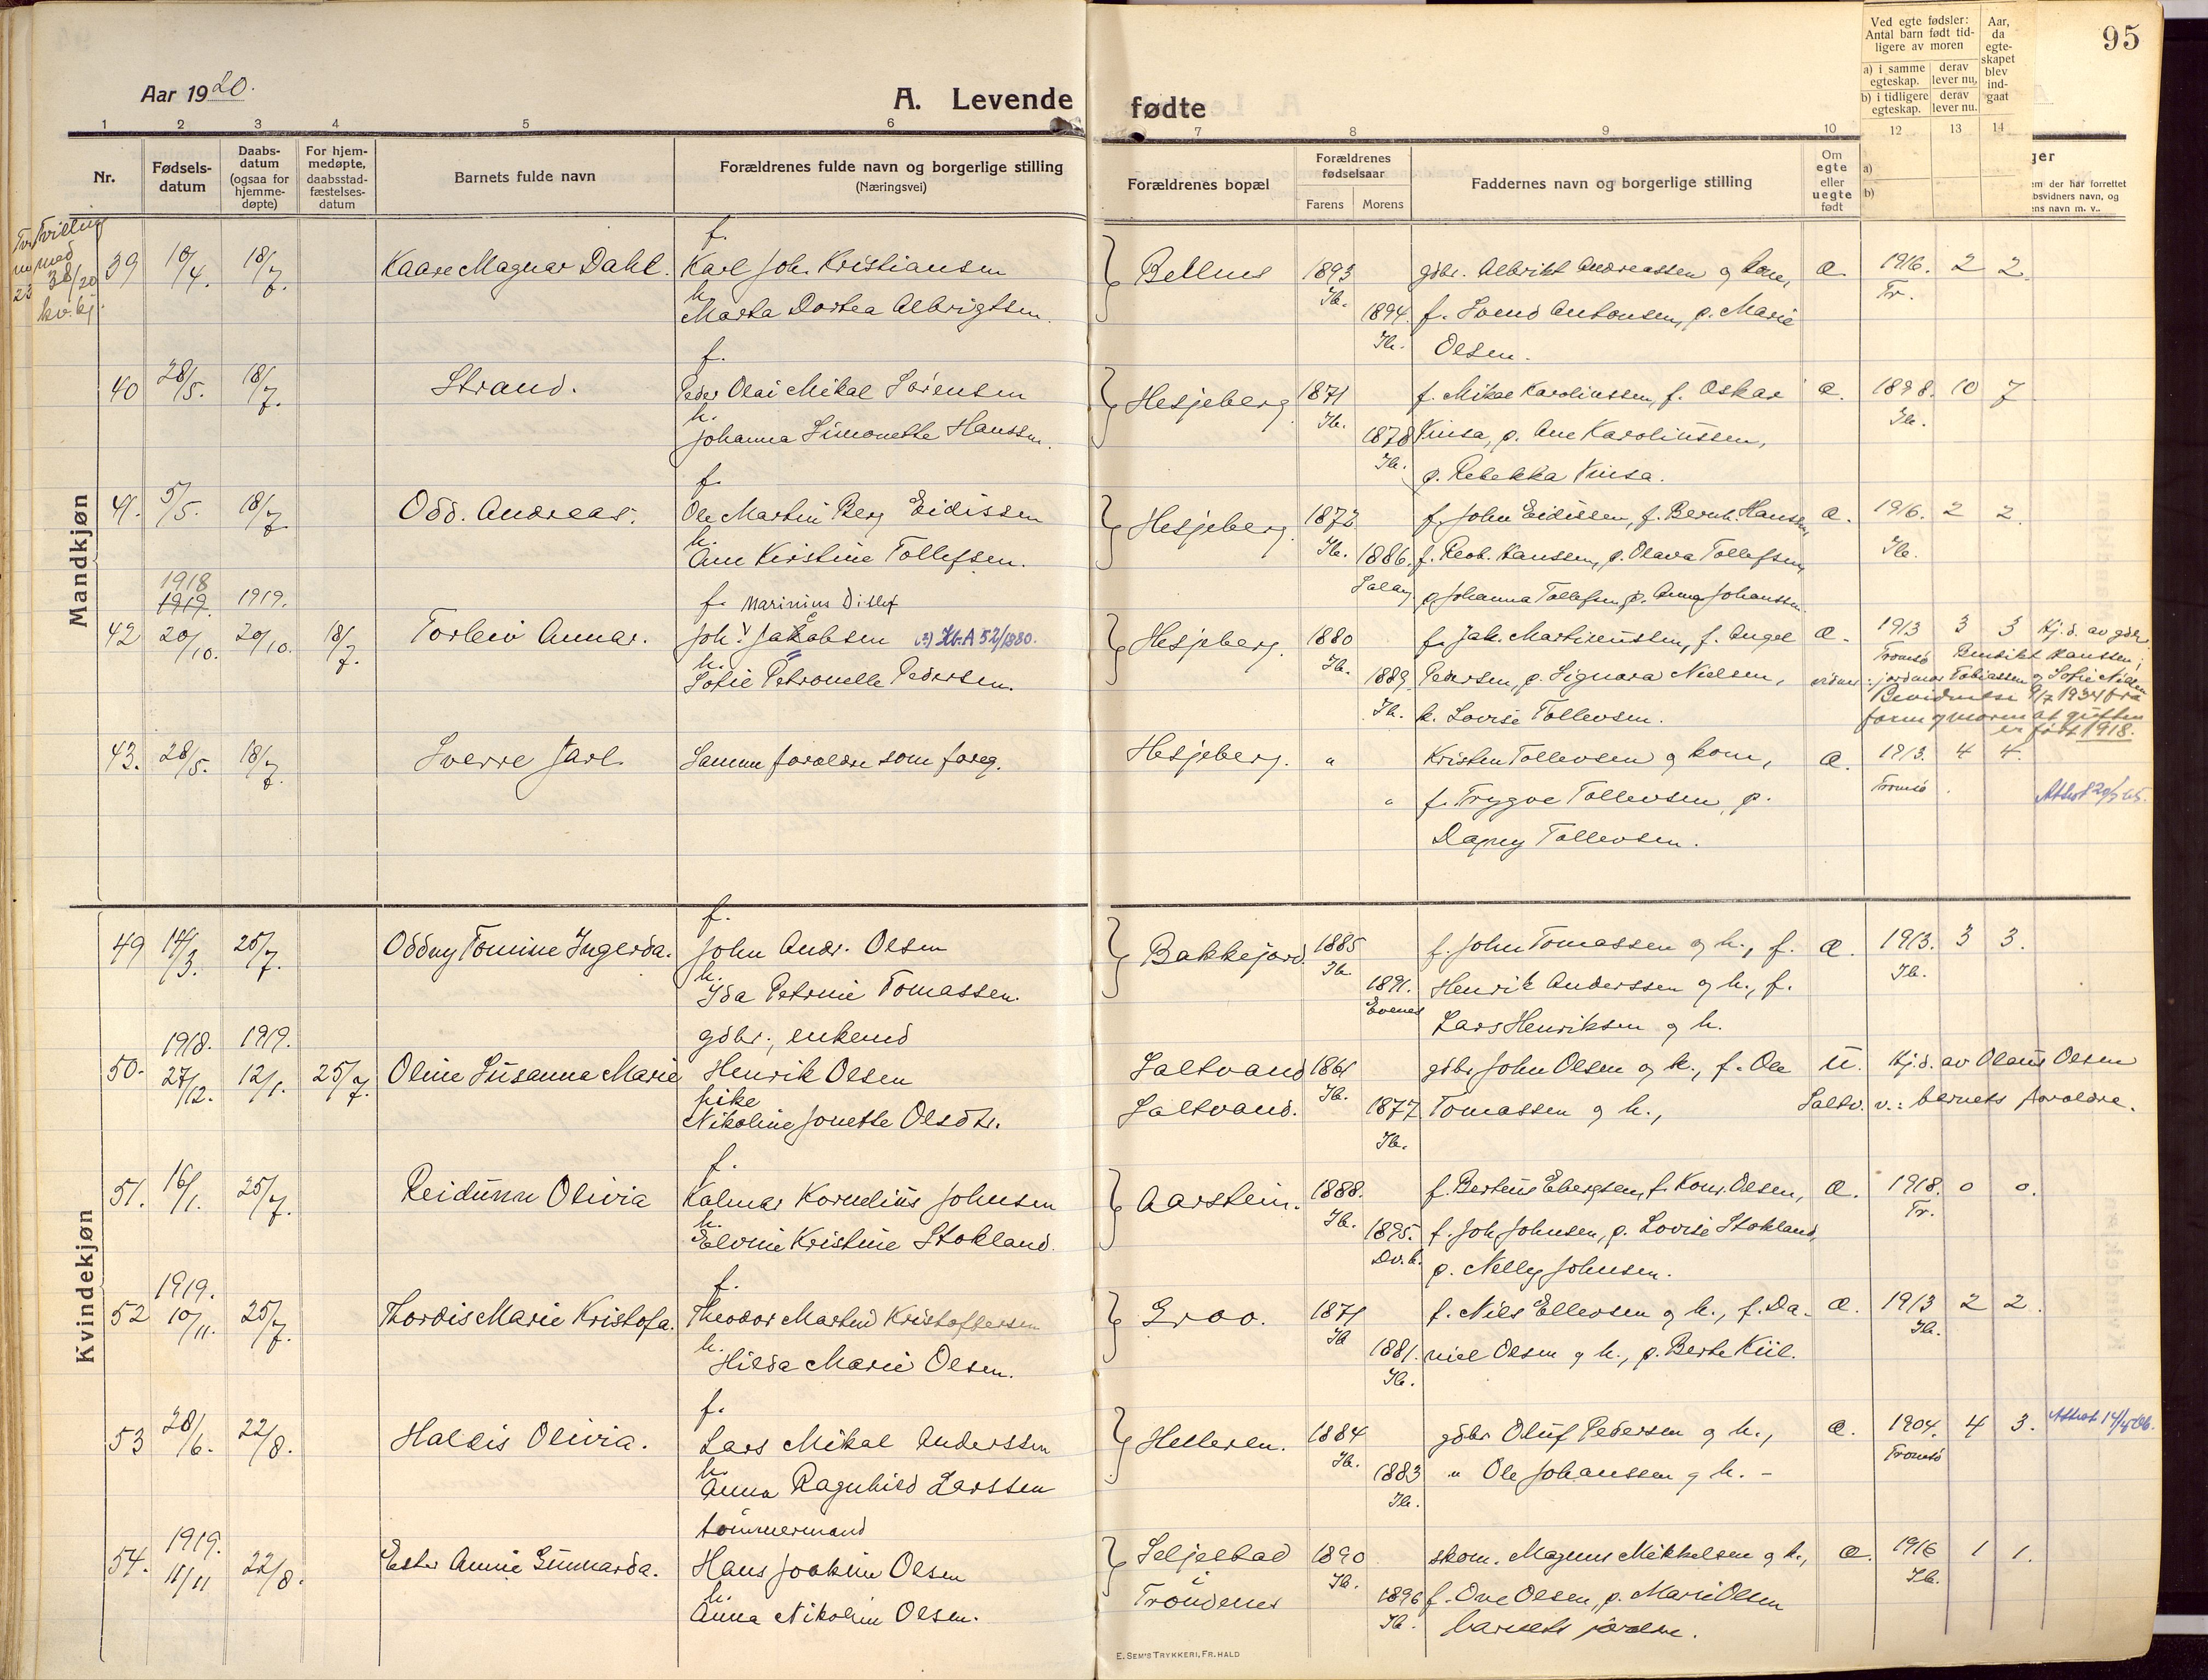 Aar 1920.
A. Levende fødte
95
Ved egte fødsler: Antal barn født tidligere av moren
a) i samme egteskap. derav lever nu.
b) i tidligere egteskap. derav lever nu.
Aar, da egteskapet blev indgaat
1 2 3 4 5 6 7 8 9 10 12 13 14
Nr.
Fødselsdatum
Daabsdatum (ogsaa for hjemmedøpte)
For hjemmedøpte, daabsstadfæstelsesdatum
Barnets fulde navn
Forældrenes fulde navn og borgerlige stilling (Næringsvei)
Forældrenes bopæl
Forældrenes fødselsaar
Farens Morens
Faddernes navn og borgerlige stilling
Om egte eller uegte født
a)
b)
ger
em der har forrettet
bsvidners navn, og
ens navn m. v..
Mandkjøn
Tvilling med 38/20 kv.kj.
39 10/4. 18/7. Kaare Magnar Dahl. f. Karl Joh. Kristiansen
h. Marta Dortea Albrigtsen.
Bellnes 1893 Ib. 1894. Ib. gdbr. Albrikt Andreassen og kone,
f. Svend Antonsen, p. Marie
Olsen.
æ. 1916. Tr. 2 2.
40 28/5. 18/7. Strand. f. Peder Olai Mikal Sörensen
h. Johanna Simonette Hanssen.
Hesjeberg. 1871 Ib. 1878 Ib. f. Mikal Karolinssen, f. Oskar
Vinsa, p. Ane Karolinssen,
p. Rebekka Vinsa.
æ. 1898. Ib. 10 7
41. 5/5. 18/7. Odd. Andreas. f. Ole Martin Berg Eidissen
h. Ane Kirstine Tollefsen.
Hesjeberg. 1872 Ib. 1886. Salang. f. John Eidissen, f. Bernh. Hanssen,
f. Reob. Hanssen, p. Olava Tollefsen,
p. Johanna Tollefsen, p. Anna Johanssen.
æ. 1916. Ib. 2 2.
42 1918 1919. 20/10. 1919. 20/10. 18/7. Torleiv Annar. f. Marinius Ditlef
Joh. Jakobsen Kb.A 52/1880.
h. Sofie Petronelle Pedersen.
Hesjeberg. 1880 Ib. 1889. Ib. f. Jak. Martinussen, f. Angel
Pedersen, p. Signora Nielsen,
k. Lovise Tollevsen.
æ. 1913 Tromsö 3 3 Kj. d. av gdbr.
Bendikt Hanssen;
vidner: jordmor Tobiassen og Sofie Nielsen
Bevidnelse 9/7 1934 fra
farm og moren at gutten
er født 1918.
43. 28/5. 18/7. Sverre Jarl. Samme foreldre som foreg.
Hesjeberg. " " Kristen Tollevsen og kone,
f. Trygve Tollevsen, p.
Dagny Tollevsen.
æ. 1913. Tromsö 4 4.
Kvindekjøn
49 14/3. 25/7. Oddny Tomine Ingerda. f. John Andr. Olsen
h. Ida Petrine Tomassen.
Bakkejord. 1885 Ib. 1891. Evenes f. John Tomassen og h., f.
Henrik Anderssen og h., f.
Lars Henriksen og h.
æ. 1913. Ib. 3 3.
50. 1918. 27/12. 1919. 12/1. 25/7. Oline Susanna Marie gdbr., enkemd
Henrik Olsen
pike
Nikoline Jonette Olsdtr.
Saltvand
Saltvand. 1861 Ib. 1877 Ib. gdbr John Olsen og k., f. Ole
Tomassen og h.,
u. Kj.d. av Olaus Olsen
Saltv. v.: barnets forældre.
51. 16/1. 25/7. Reidunn Olivia f. Kalmar Kornelius Johnsen
h. Elvine Kristine Stokland.
Aarstein. 1888. Ib. 1895. Dv.b. f. Berteus Ebergsen, f. Konr. Olsen,
f. Joh. Johnsen, p. Lovise Stokland,
p. Nelly Johnsen.
æ. 1918. Tr. 0 0.
52 1919. 10/11. 25/7. Thordis Marie Kristofa. f. Theodor Martin Kristoffersen
h. Hilda Marie Olsen.
Grov. 1871 Ib 1881. Ib. f. Nils Ellevsen og h., f. Da-
niel Olsen og h., p. Berte Kiil.
æ. 1913 Ib. 2 2.
53 28/6. 22/8. Haldis Olivia. f. Lars Mikal Anderssen
h. Anna Ragnhild Larssen
Helleren. 1884 Ib. 1883 Ib. gdbr Oluf Pedersen og h.,
" Ole Johanssen og h. -
æ. 1904. Tromsö 4 3.
54. 1919. 11/11 22/8. Ester Annie Gunnarda. tömmermand
Hans Joakim Olsen
h. Anna Nikoline Olsen.
Seljestad
Tröndenes 1890 Ib. 1896 Ib. skom. Magnus Mikkelsen og k.,
f. Ove Olsen, p. Marie Olsen
barnets forældre.
æ. 1916 Ib. 1 1.
E. SEM'S TRYKKERI, FR.HALD